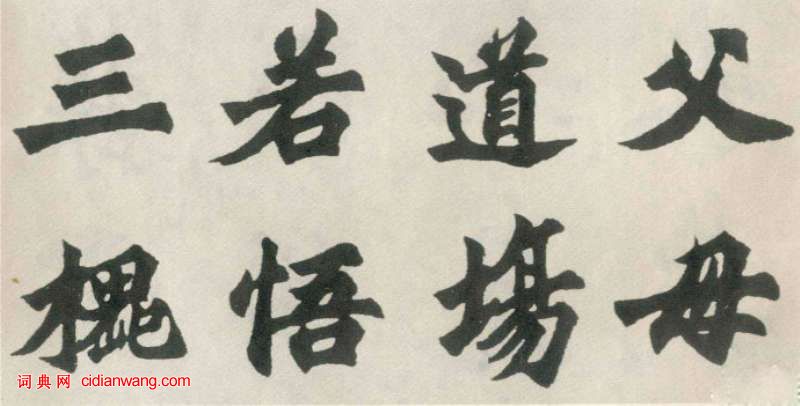 父母
道場
若悟
三
词典网 cidianwang.com